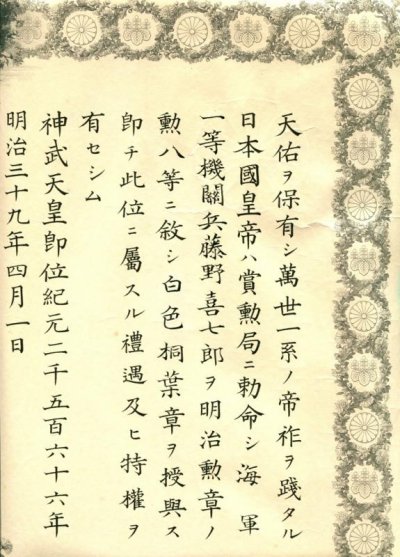 天佑ヲ保有シ萬世一系ノ帝祚ヲ踐タル
日本國皇帝ハ賞勲局ニ勅命シ海軍
一等機關兵藤野喜七郎ヲ明治勲章ノ
勲八等ニ敘シ白色桐葉章ヲ授與ス
即チ此位ニ屬スル禮遇及ヒ特權ヲ
有セシム
神武天皇即位紀元二千五百六十六年
明治三十九年四月一日